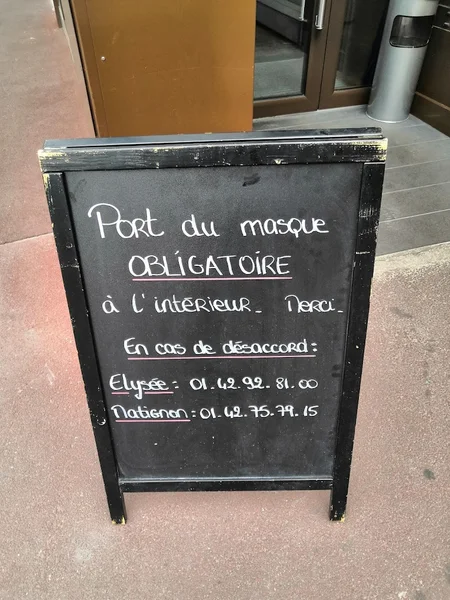 Port du masque
OBLIGATOIRE
à l'intérieur_ Merci_
En cas de désaccord:
Elysée: 01.42.92.81.00
Matignon: 01.42.75.79.15